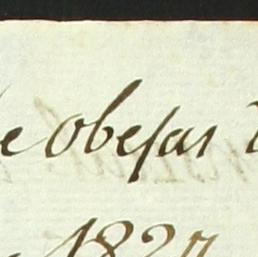 e obejas
1827